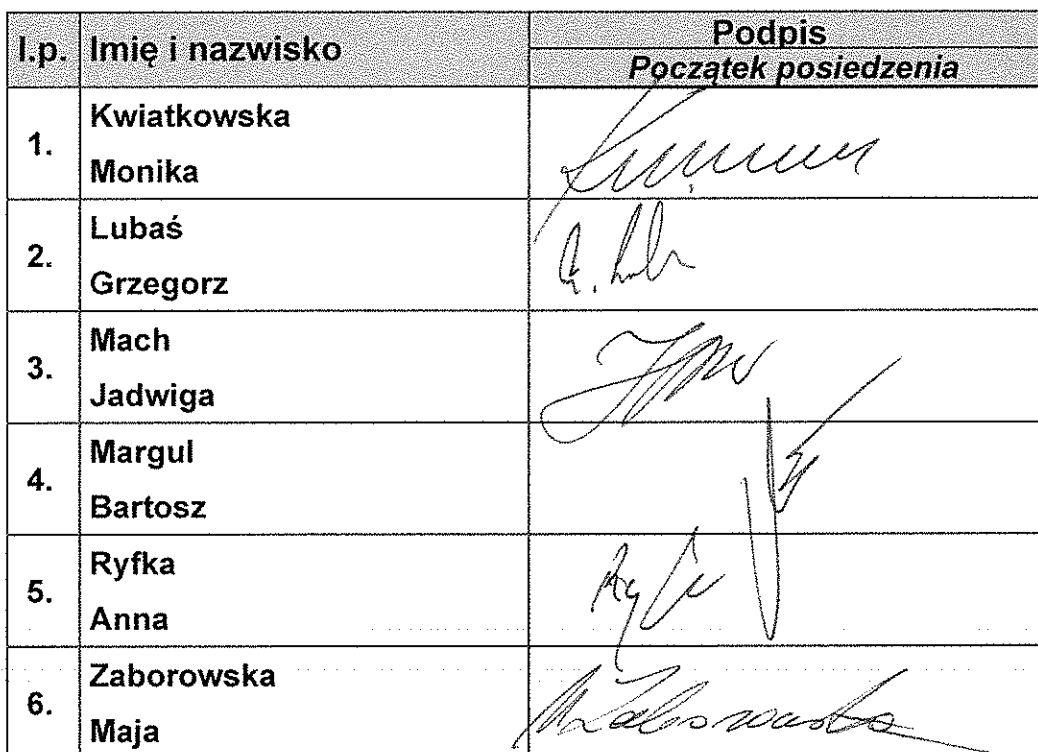 l.p. Imię i nazwisko Podpis
Początek posiedzenia
1. Kwiatkowska
Monika
2. Lubaś
Grzegorz
3. Mach
Jadwiga
4. Margul
Bartosz
5. Ryfka
Anna
6. Zaborowska
Maja
MZaborowska